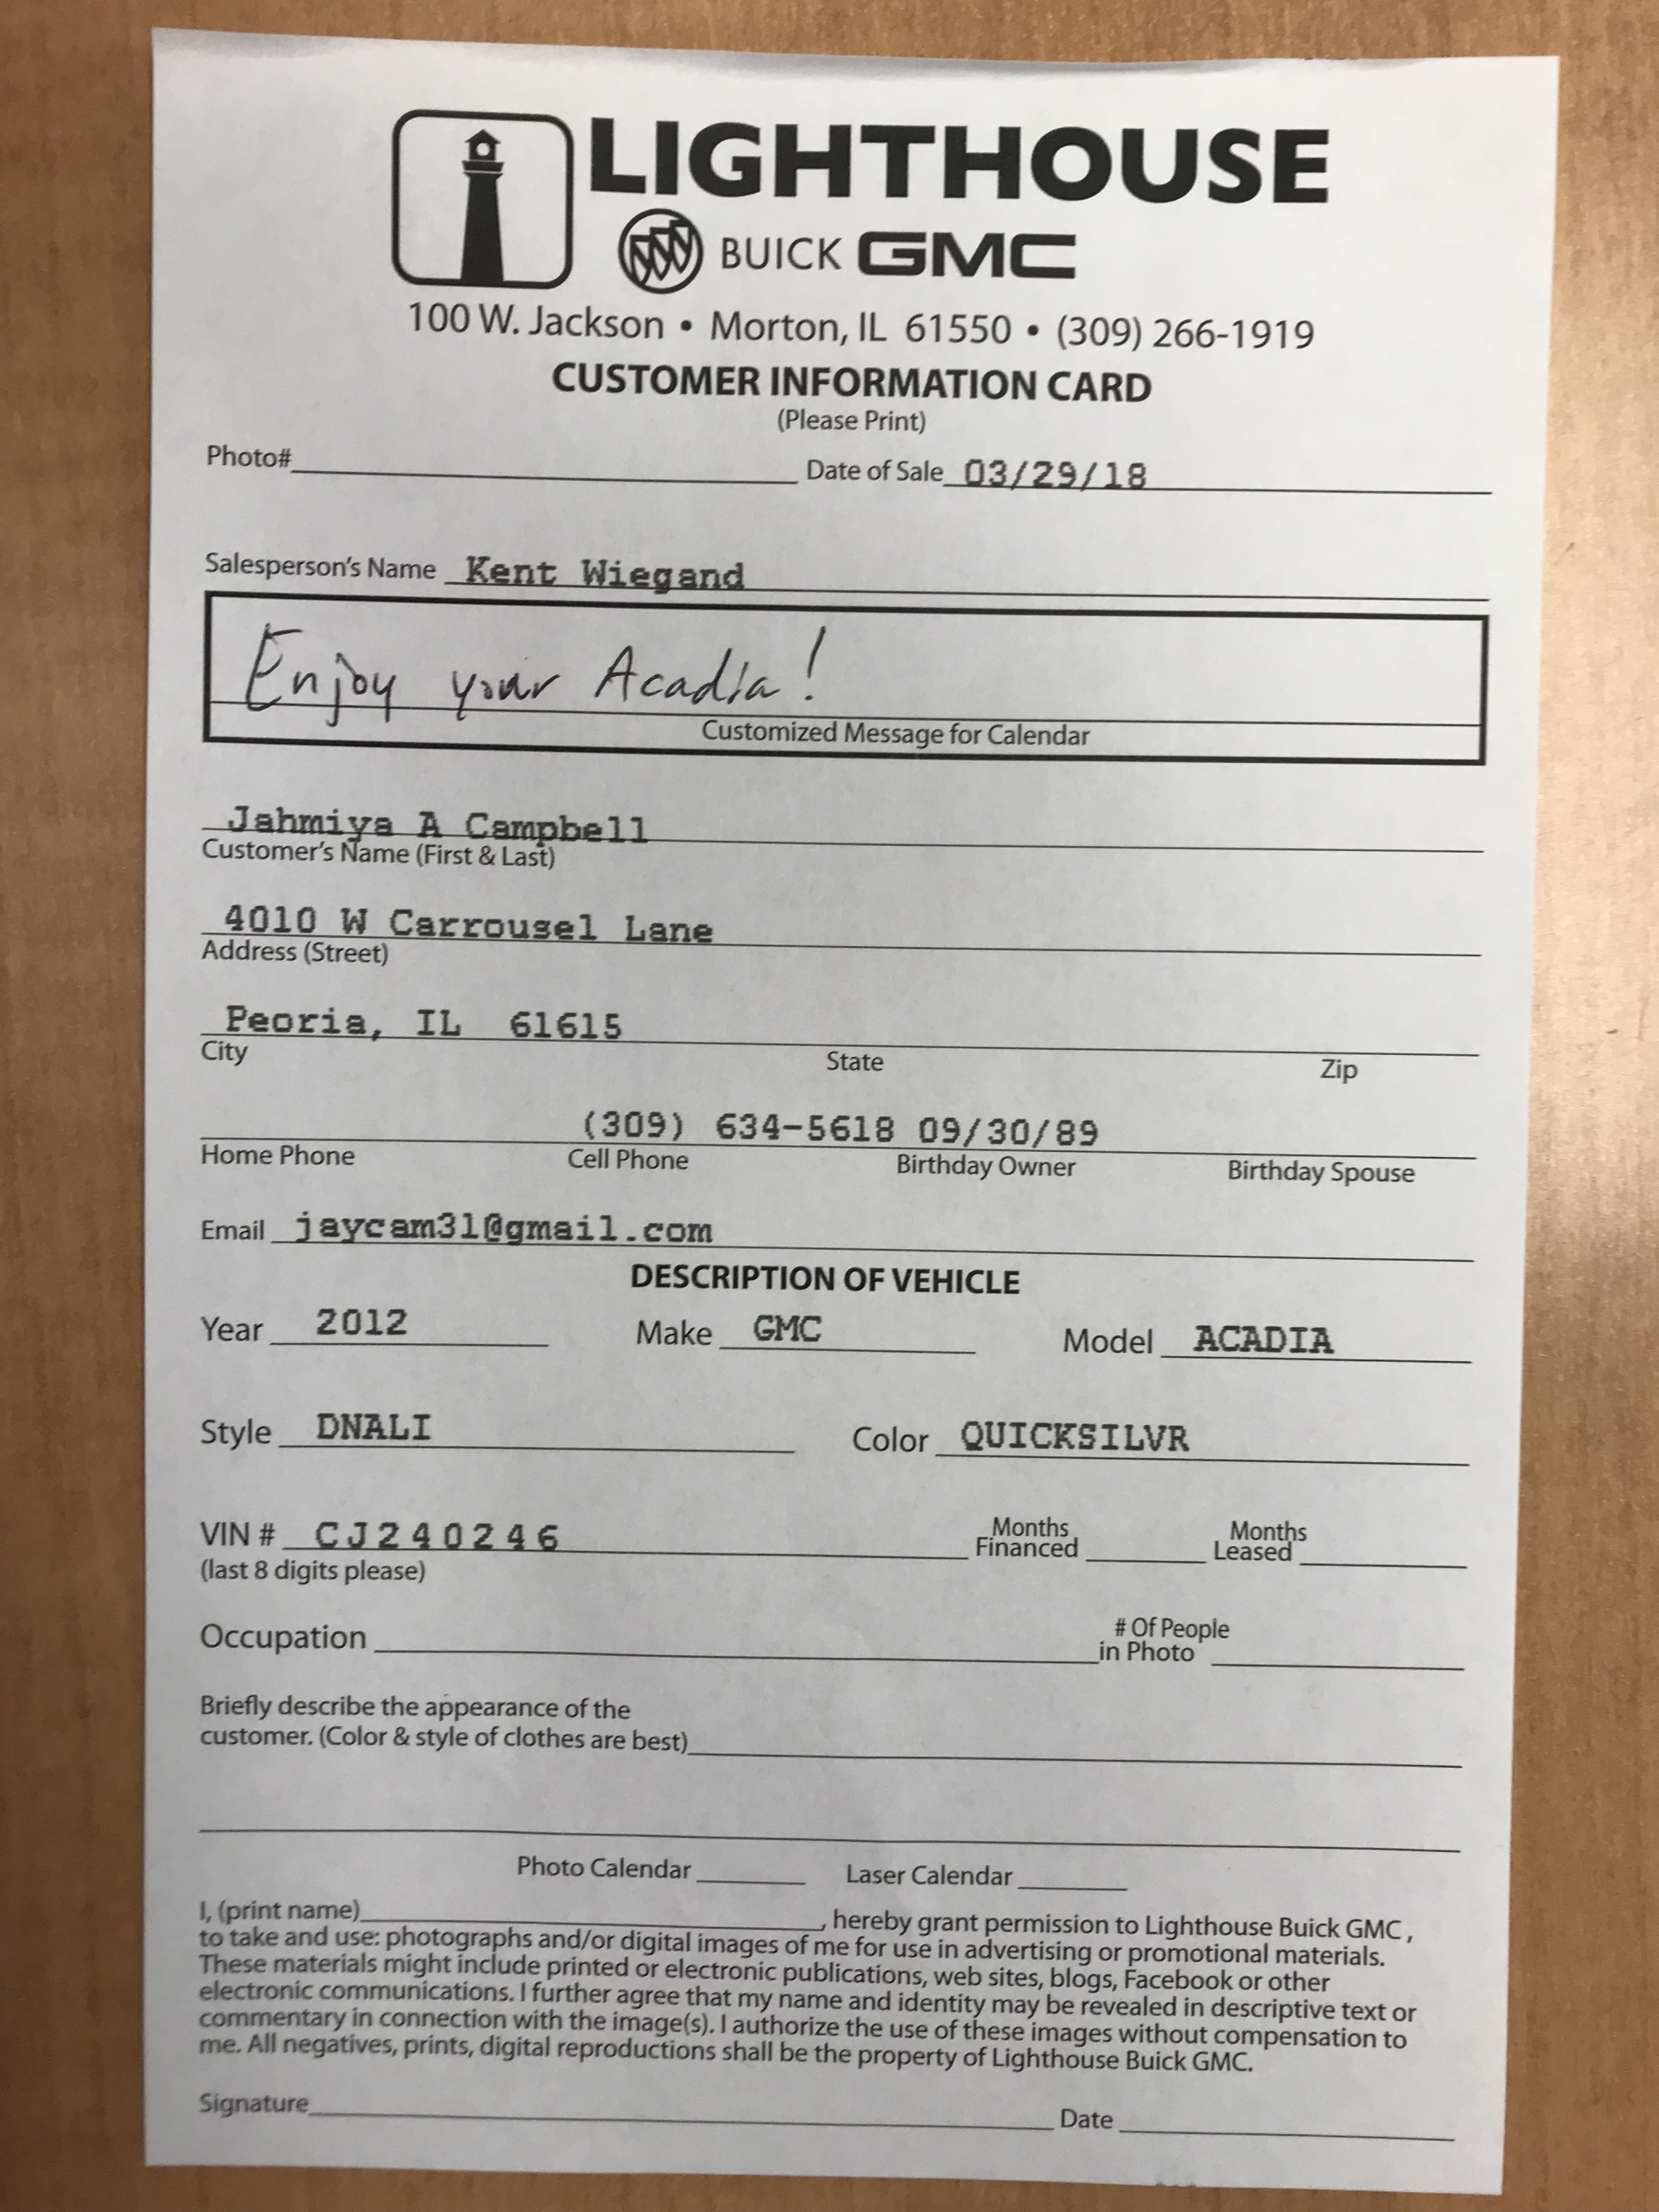 LIGHTHOUSE
BUICK GMC
100 W. Jackson • Morton, IL 61550 • (309) 266-1919
CUSTOMER INFORMATION CARD
(Please Print)
Photo# Date of Sale 03/29/18
Salesperson's Name Kent Wiegand
Enjoy your Acadia!
Customized Message for Calendar
Jahmiya A Campbell
Customer's Name (First & Last)
4010 W Carrousel Lane
Address (Street)
Peoria, IL 61615
City State Zip
(309) 634-5618 09/30/89
Home Phone Cell Phone Birthday Owner Birthday Spouse
Email jaycam31@gmail.com
DESCRIPTION OF VEHICLE
Year 2012 Make GMC Model ACADIA
Style DNALI Color QUICKSILVR
VIN # CJ240246 Months Financed Months Leased
(last 8 digits please)
Occupation # Of People in Photo
Briefly describe the appearance of the
customer. (Color & style of clothes are best)
Photo Calendar Laser Calendar
I, (print name), hereby grant permission to Lighthouse Buick GMC,
to take and use: photographs and/or digital images of me for use in advertising or promotional materials.
These materials might include printed or electronic publications, web sites, blogs, Facebook or other
electronic communications. I further agree that my name and identity may be revealed in descriptive text or
commentary in connection with the image(s). I authorize the use of these images without compensation to
me. All negatives, prints, digital reproductions shall be the property of Lighthouse Buick GMC.
Signature Date